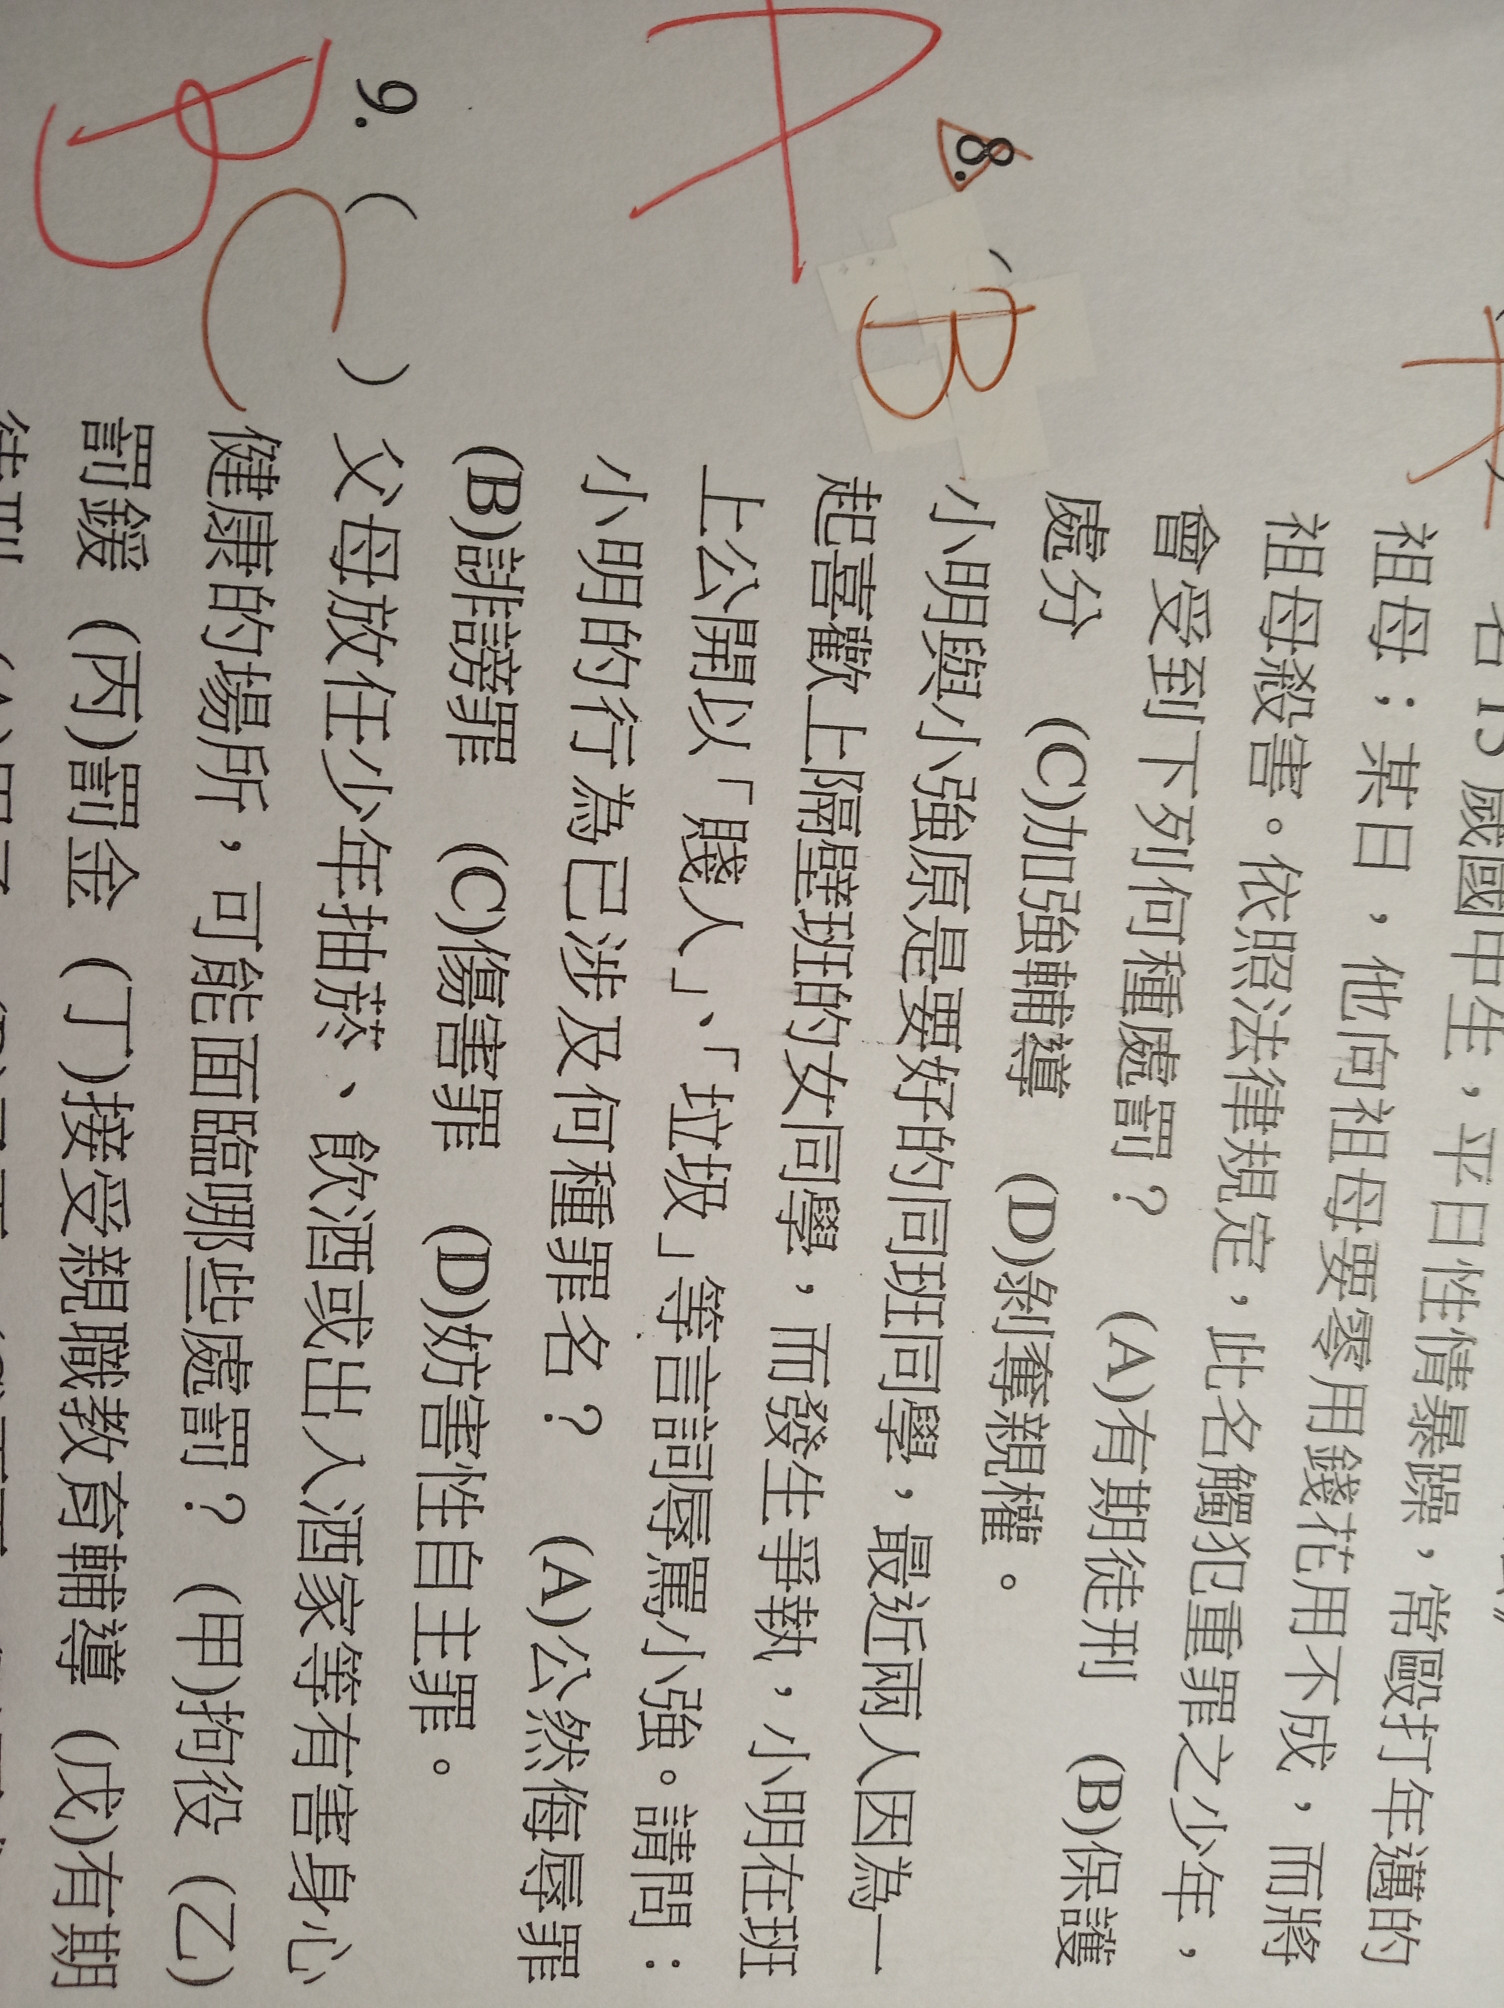 名15歲國中生，平日性情暴躁，常毆打年邁的
祖母；某日，他向祖母要零用錢花用不成，而將
祖母殺害。依照法律規定，此名觸犯重罪之少年，
會受到下列何種處罰？ (A)有期徒刑 (B)保護
處分 (C)加強輔導 (D)剝奪親權。
A
8. ( B 小明與小強原是要好的同班同學，最近兩人因為一
起喜歡上隔壁班的女同學，而發生爭執，小明在班
上公開以「賤人」、「垃圾」等言詞辱罵小強。請問：
小明的行為已涉及何種罪名？ (A)公然侮辱罪
(B)誹謗罪 (C)傷害罪 (D)妨害性自主罪。
A
9. ( C ) 父母放任少年抽菸、飲酒或出入酒家等有害身心
健康的場所，可能面臨哪些處罰？ (甲)拘役 (乙)
罰鍰 (丙)罰金 (丁)接受親職教育輔導 (戊)有期
B